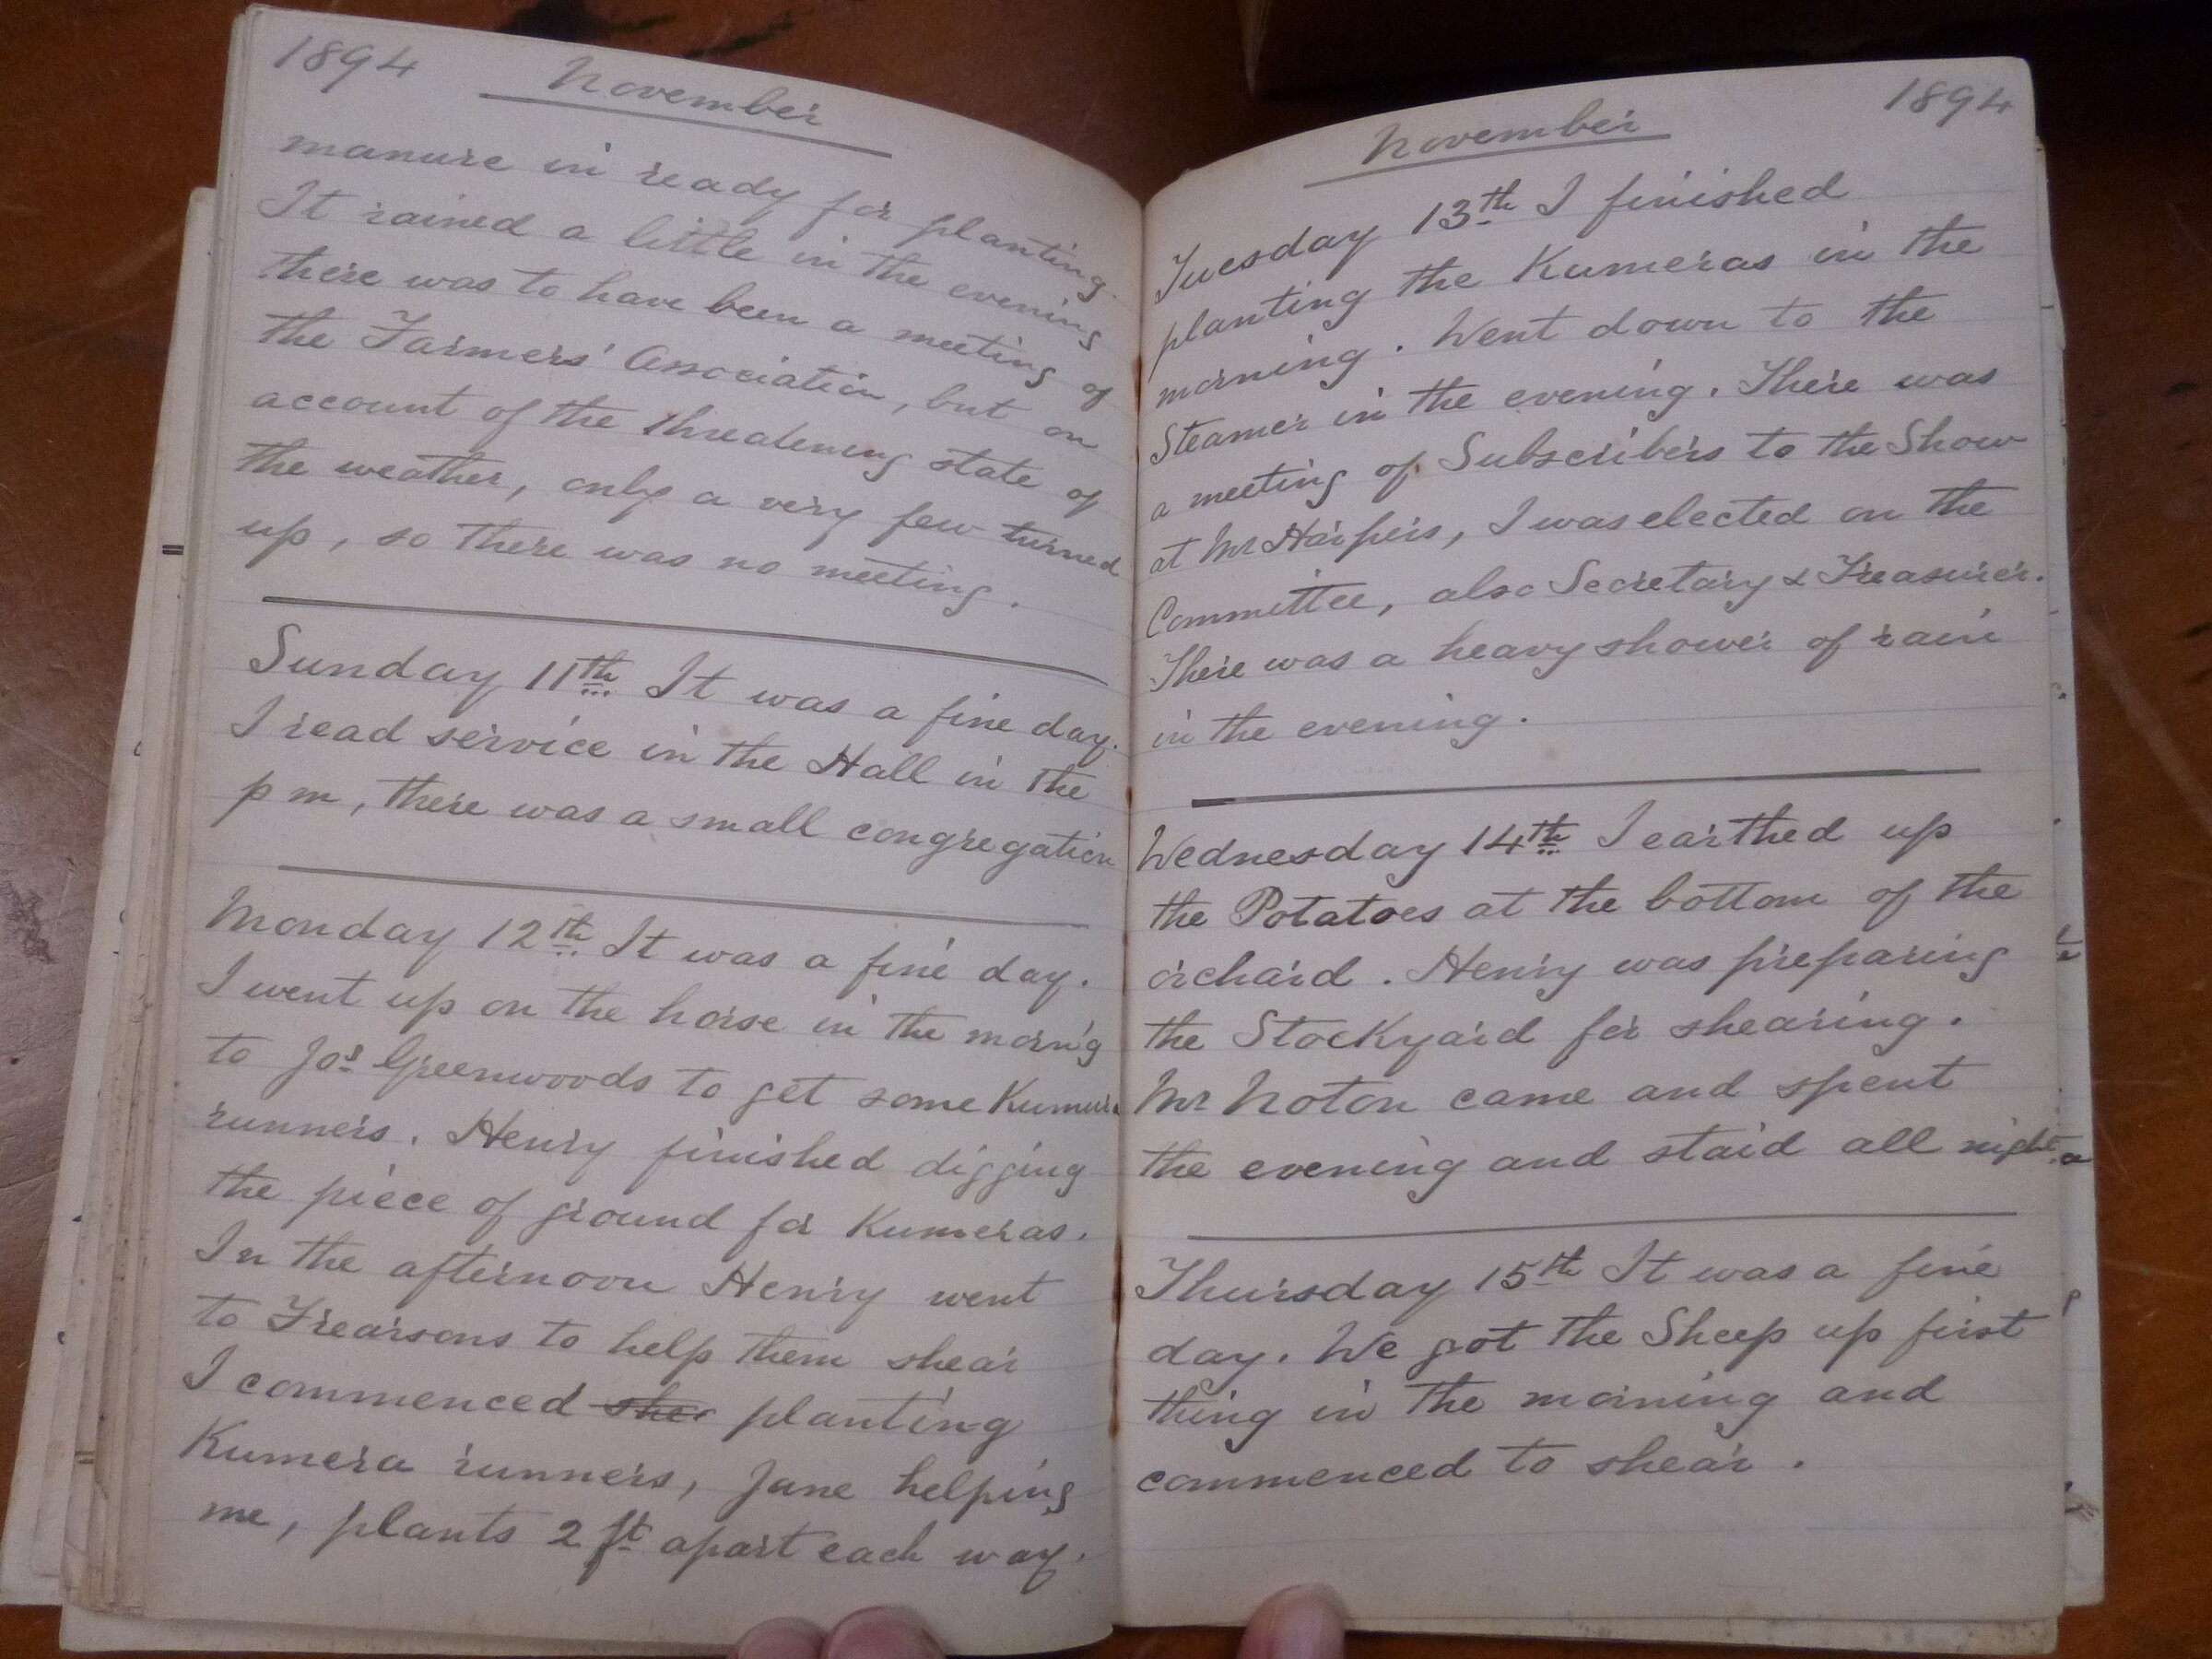 1894 November
manure in ready for planting.
It rained a little in the evening
there was to have been a meeting of
the Farmers' Association, but on
account of the threatening state of
the weather, only a very few turned
up, so there was no meeting.
Sunday 11th It was a fine day.
I read service in the Hall in the
p m, there was a small congregation
Monday 12th It was a fine day.
I went up on the horse in the morn'g
to Jos Greenwoods to get some Kumera
runners. Henry finished digging
the piece of ground for Kumeras.
In the afternoon Henry went
to Frearsons to help them shear
I commenced she planting
Kumera runners, Jane helping
me, plants 2 ft apart each way.
November 1894
Tuesday 13th I finished
planting the Kumeras in the
morning. Went down to the
Steamer in the evening. There was
a meeting of Subscribers to the Show
at Mr Harpers, I was elected on the
Committee, also Secretary & Treasurer.
There was a heavy shower of rain
in the evening.
Wednesday 14th I earthed up
the Potatoes at the bottom of the
orchard. Henry was preparing
the Stockyard for shearing.
Mr Noton came and spent
the evening and staid all night
Thursday 15th It was a fine
day. We got the Sheep up first
thing in the morning and
commenced to shear.